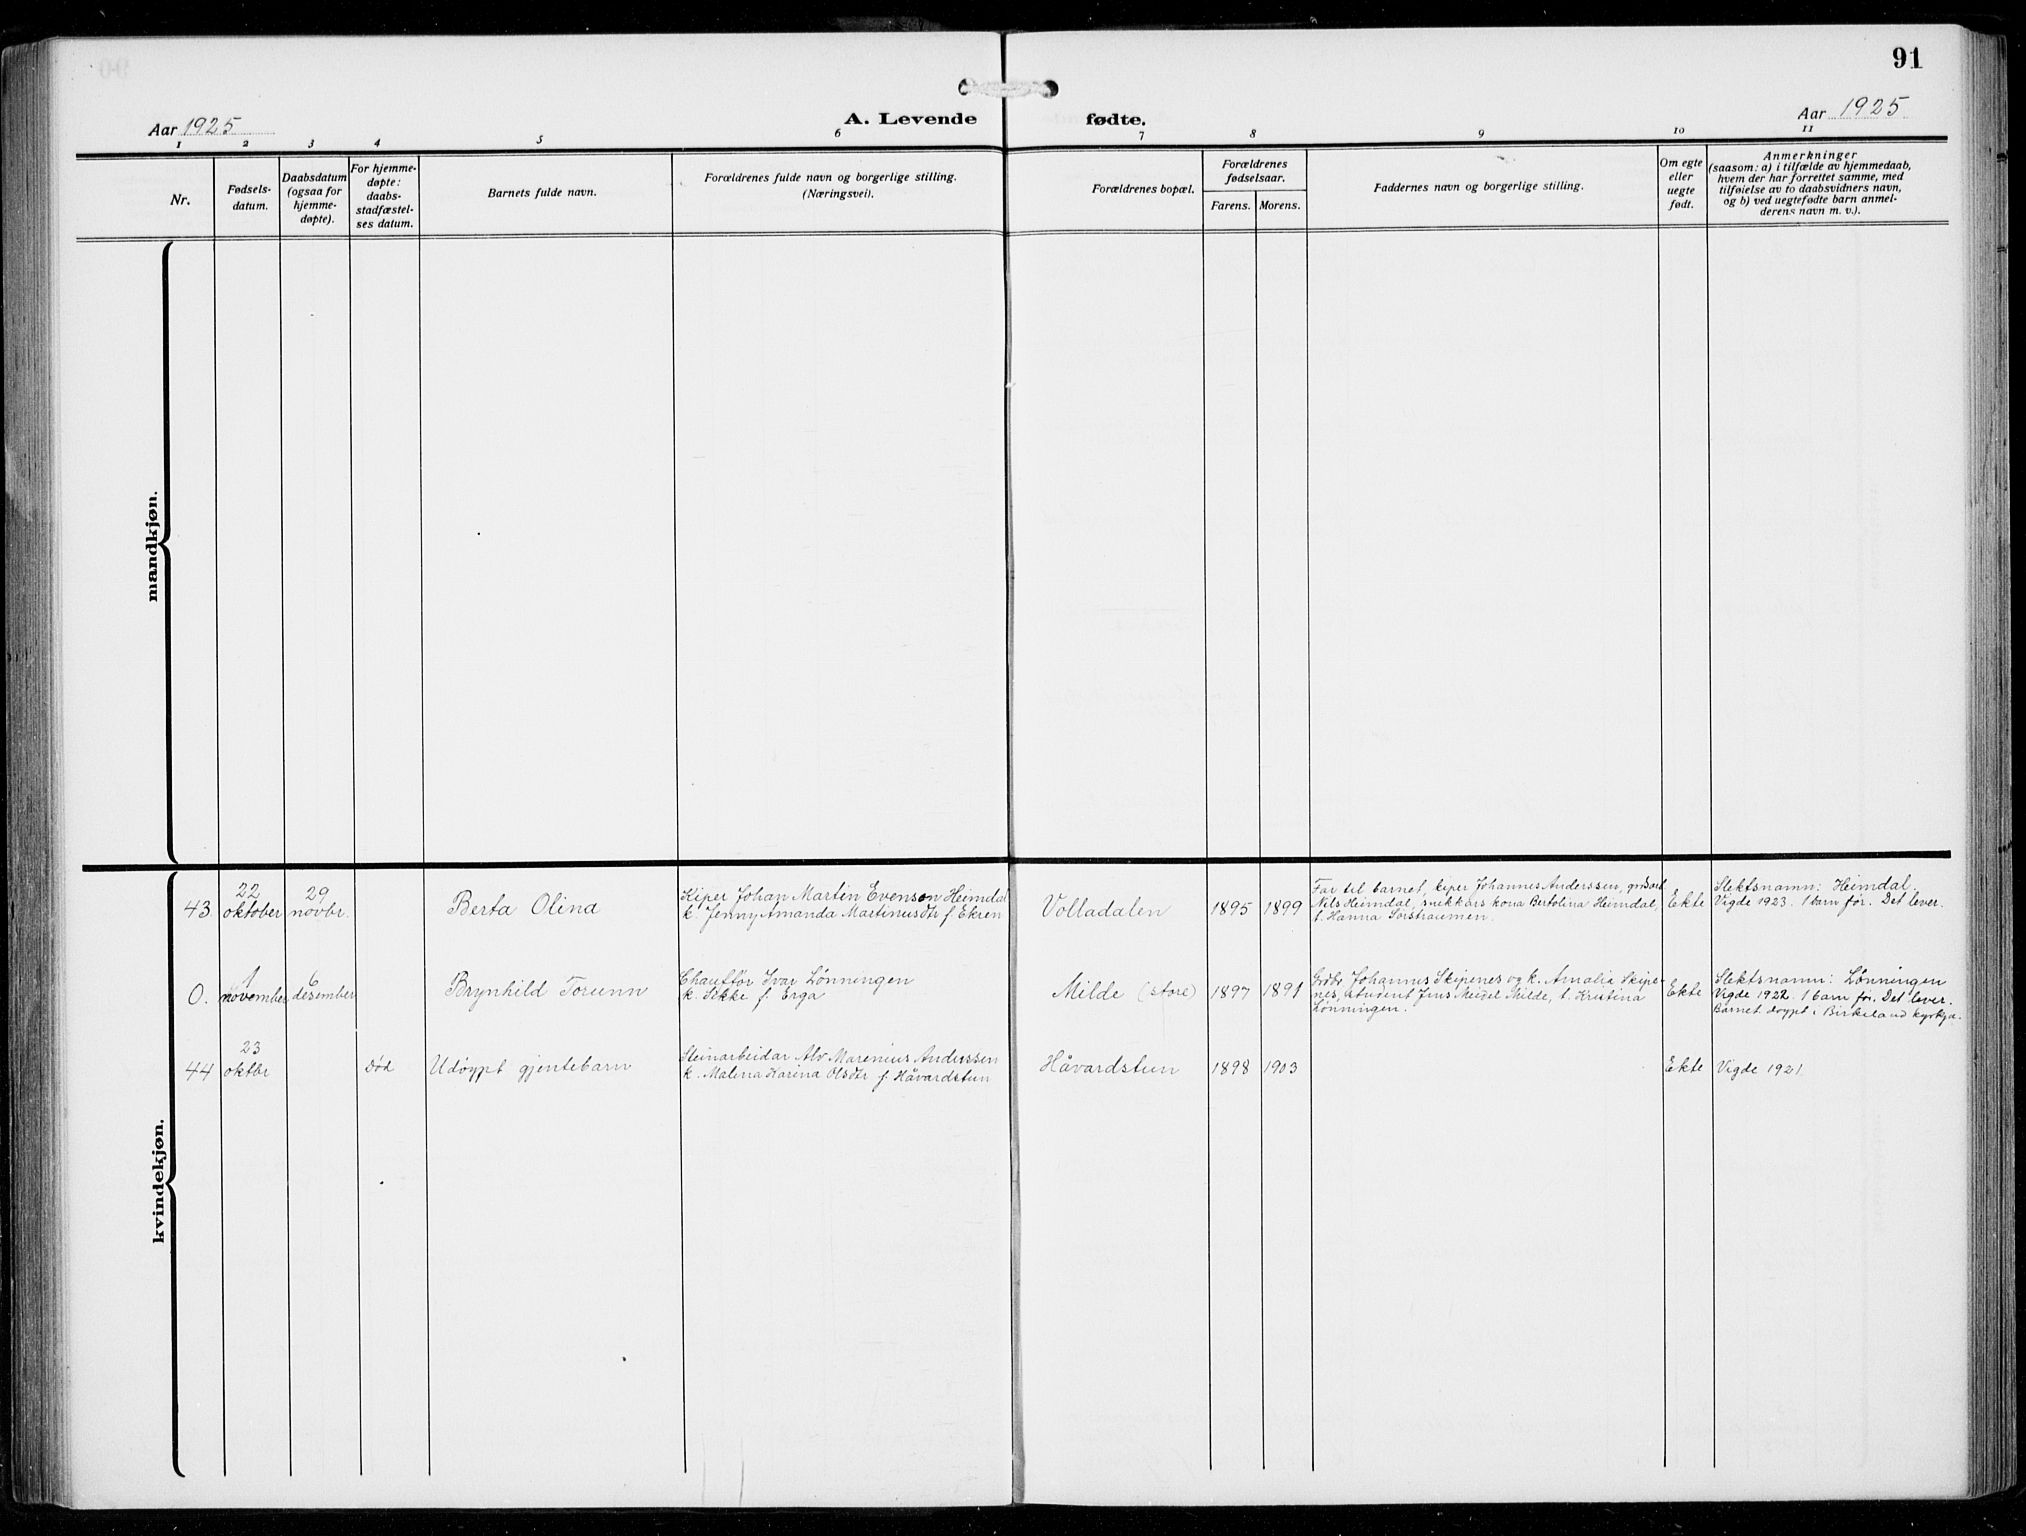 91
Aar 1925
A. Levende fødte.
Aar 1925
1 2 3 4 5 6 7 8 9 10 11
Nr.
Fødsels-
datum.
Daabsdatum
(ogsaa for
hjemme-
døpte).
For hjemme-
døpte:
daabs-
stadfæstel-
ses datum.
Barnets fulde navn.
Forældrenes fulde navn og borgerlige stilling.
(Næringsvei).
Forældrenes bopæl.
Forældrenes
fødselsaar.
Farens. Morens.
Faddernes navn og borgerlige stilling.
Om egte
eller
uegte
født.
Anmerkninger
(saasom: a) i tilfælde av hjemmedaab,
hvem der har forrettet samme, med
tilføielse av to daabsvidners navn,
og b) ved uegtefødte barn anmel-
derens navn m. v.).
mandkjøn.
kvindekjøn.
43.
22
oktober
29
novbr.
Berta Olina
Kiper Johan Martin Evenson Heimdal
k. Jenny Amanda Martinusdtr f. Ekren
Volladalen
1895
1899
Far til barnet, kiper Johannes Anderssen, grdsarb
Nils Heimdal, snikkars kona Bertolina Heimdal,
t. Hanna Sorstraumen.
Ekte
Slektsnamn: Heimdal.
Vigde 1923. 1 barn før. Det lever.
0.
1
november
6
desember
Brynhild Torunn
Chauffør Ivar Lønningen
k. Sikke f. Erga
Milde (store)
1897
1891
Grdbr Johannes Skipenes og k. Amalie Skipe-
nes, student Jens Meidel Milde, t. Kristina
Lønningen.
Ekte
Slektsnamn: Lønningen
Vigde 1922. 1 barn før. Det lever.
Barnet døypt i Birkeland kyrkja.
44
23
oktbr
død
Udøypt gjentebarn
Steinarbeidar Alv Marenius Anderssen
k. Malena Karina Olsdtr f. Håvardstun
Håvardstun
1898
1903
Ekte
Vigde 1921